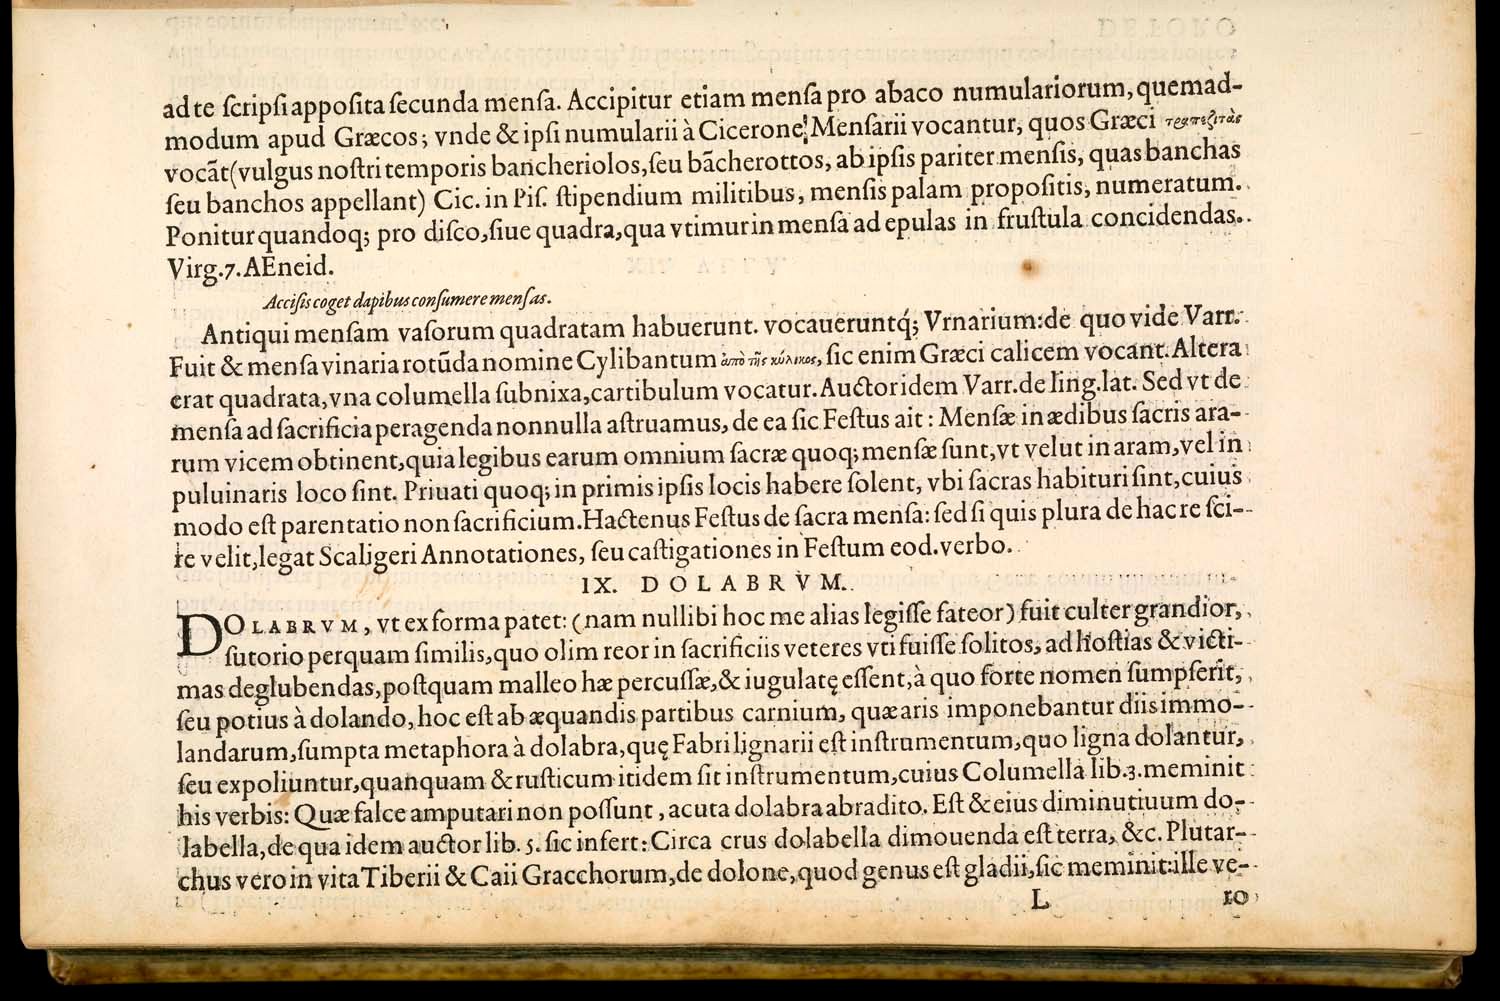 ad te ſcripſi appoſita ſecunda menſa. Accipitur etiam menſa pro abaco numulariorum, quemad-
modum apud Græcos; vnde & ipſi numularii à Cicerone Menſarii vocantur, quos Græci τραπεζιτὰς
vocãt (vulgus noſtri temporis bancheriolos, ſeu bãcherottos, ab ipſis pariter menſis, quas banchas
ſeu banchos appellant) Cic. in Piſ. ſtipendium militibus, menſis palam propoſitis, numeratum.
Ponitur quandoq; pro diſco, ſiue quadra, qua vtimur in menſa ad epulas in fruſtula concidendas.
Virg. 7. AEneid.
Acciſis coget dapibus conſumere menſas.
Antiqui menſam vaſorum quadratam habuerunt. vocaueruntq́; Vrnarium: de quo vide Varr.
Fuit & menſa vinaria rotũda nomine Cylibantum ἀπὸ τῆς κύλικος, ſic enim Græci calicem vocant. Altera
erat quadrata, vna columella ſubnixa, cartibulum vocatur. Auctor idem Varr. de ling. lat. Sed vt de
menſa ad ſacrificia peragenda nonnulla aſtruamus, de ea ſic Feſtus ait: Menſæ in ædibus ſacris ara-
rum vicem obtinent, quia legibus earum omnium ſacræ quoq; menſæ ſunt, vt velut in aram, vel in
puluinaris loco ſint. Priuati quoq; in primis ipſis locis habere ſolent, vbi ſacras habituri ſint, cuius
modo eſt parentatio non ſacrificium. Hactenus Feſtus de ſacra menſa: ſed ſi quis plura de hac re ſci-
re velit, legat Scaligeri Annotationes, ſeu caſtigationes in Feſtum eod. verbo.
IX. DOLABRVM.
DOLABRVM, vt ex forma patet: (nam nullibi hoc me alias legiſſe fateor) fuit culter grandior,
ſutorio perquam ſimilis, quo olim reor in ſacrificiis veteres vti fuiſſe ſolitos, ad hoſtias & victi-
mas deglubendas, poſtquam malleo hæ percuſſæ, & iugulatę eſſent, à quo forte nomen ſumpſerit,
ſeu potius à dolando, hoc eſt ab æquandis partibus carnium, quæ aris imponebantur diis immo-
landarum, ſumpta metaphora à dolabra, quę Fabri lignarii eſt inſtrumentum, quo ligna dolantur,
ſeu expoliuntur, quanquam & ruſticum itidem ſit inſtrumentum, cuius Columella lib. 3. meminit
his verbis: Quæ falce amputari non poſſunt, acuta dolabra abradito. Eſt & eius diminutiuum do-
labella, de qua idem auctor lib. 5. ſic infert: Circa crus dolabella dimouenda eſt terra, &c. Plutar-
chus vero in vita Tiberii & Caii Gracchorum, de dolone, quod genus eſt gladii, ſic meminit: ille ve-
L ro